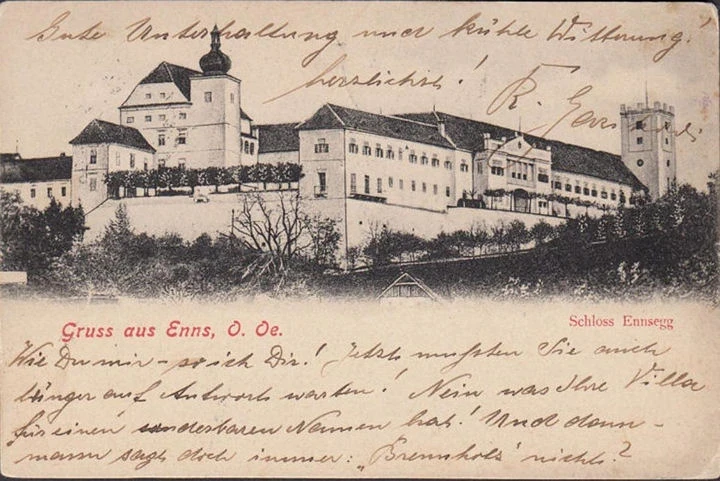 Gute Unterhaltung und kühle Witterung!
herzlichst!
R.
Gruss aus Enns, O. Oe.
Schloss Ennsegg
Wie Du mir – so ich Dir! Jetzt mußten Sie auch
länger auf Antwort warten! Nein was Ihre Villa
für einen sonderbaren Namen hat! Und dann –
mann sagt doch immer: „Brennholz" nichts?